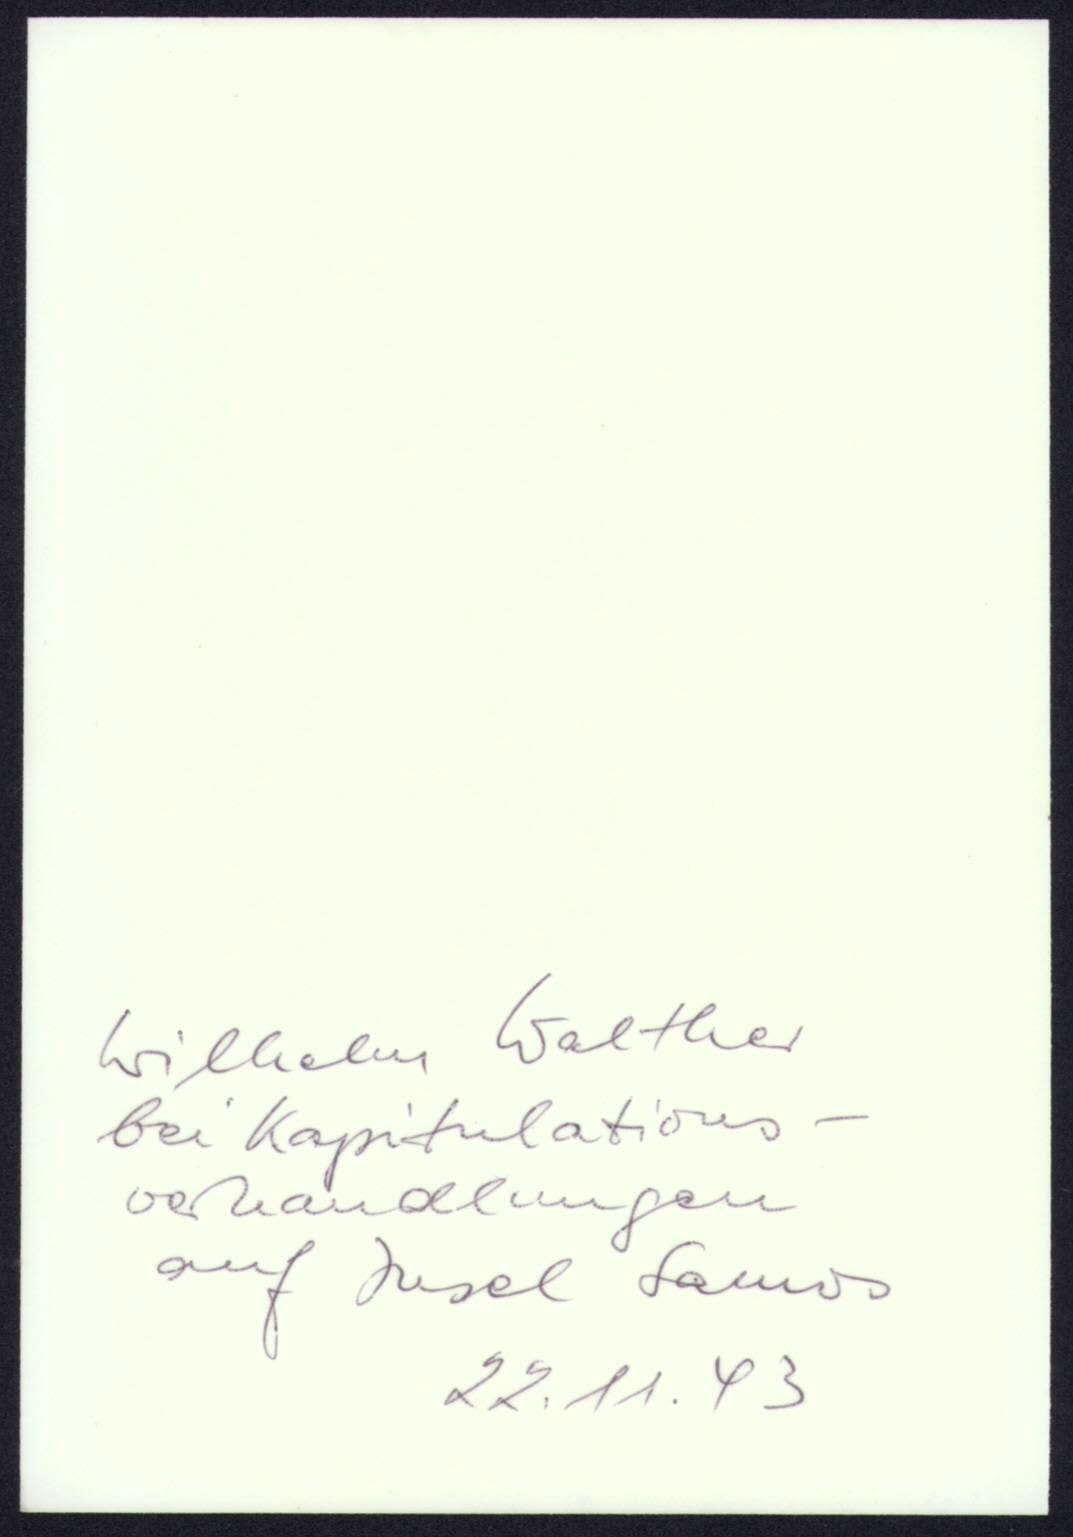 Wilhelm Walther
bei Kapitulations-
verhandlungen
auf Insel Samos
22.11.43